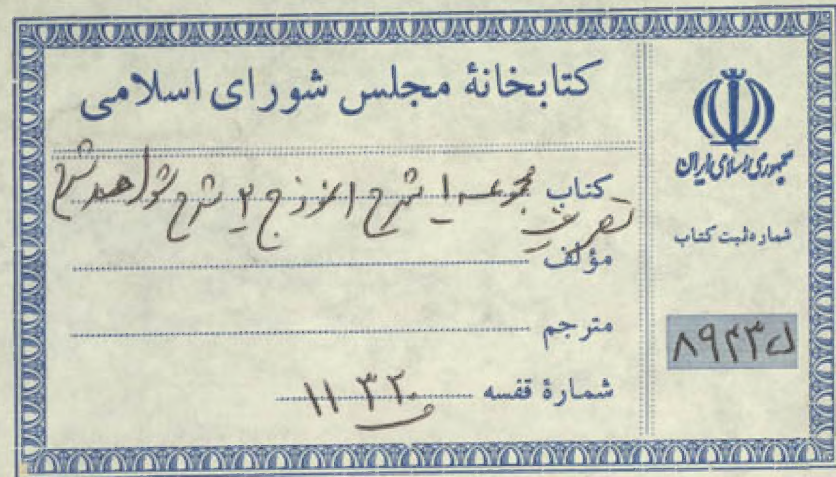 کتابخانهٔ مجلس شورای اسلامی
جمهوری اسلامی ایران
کتاب مجموعه ۱ شرح انموذج ۲ شرح شواهد شرح
تصریف
مؤلف
مترجم
شمارهٔ قفسه ۱۱۳۲۰
شماره ثبت کتاب
۸۹۴۳۵